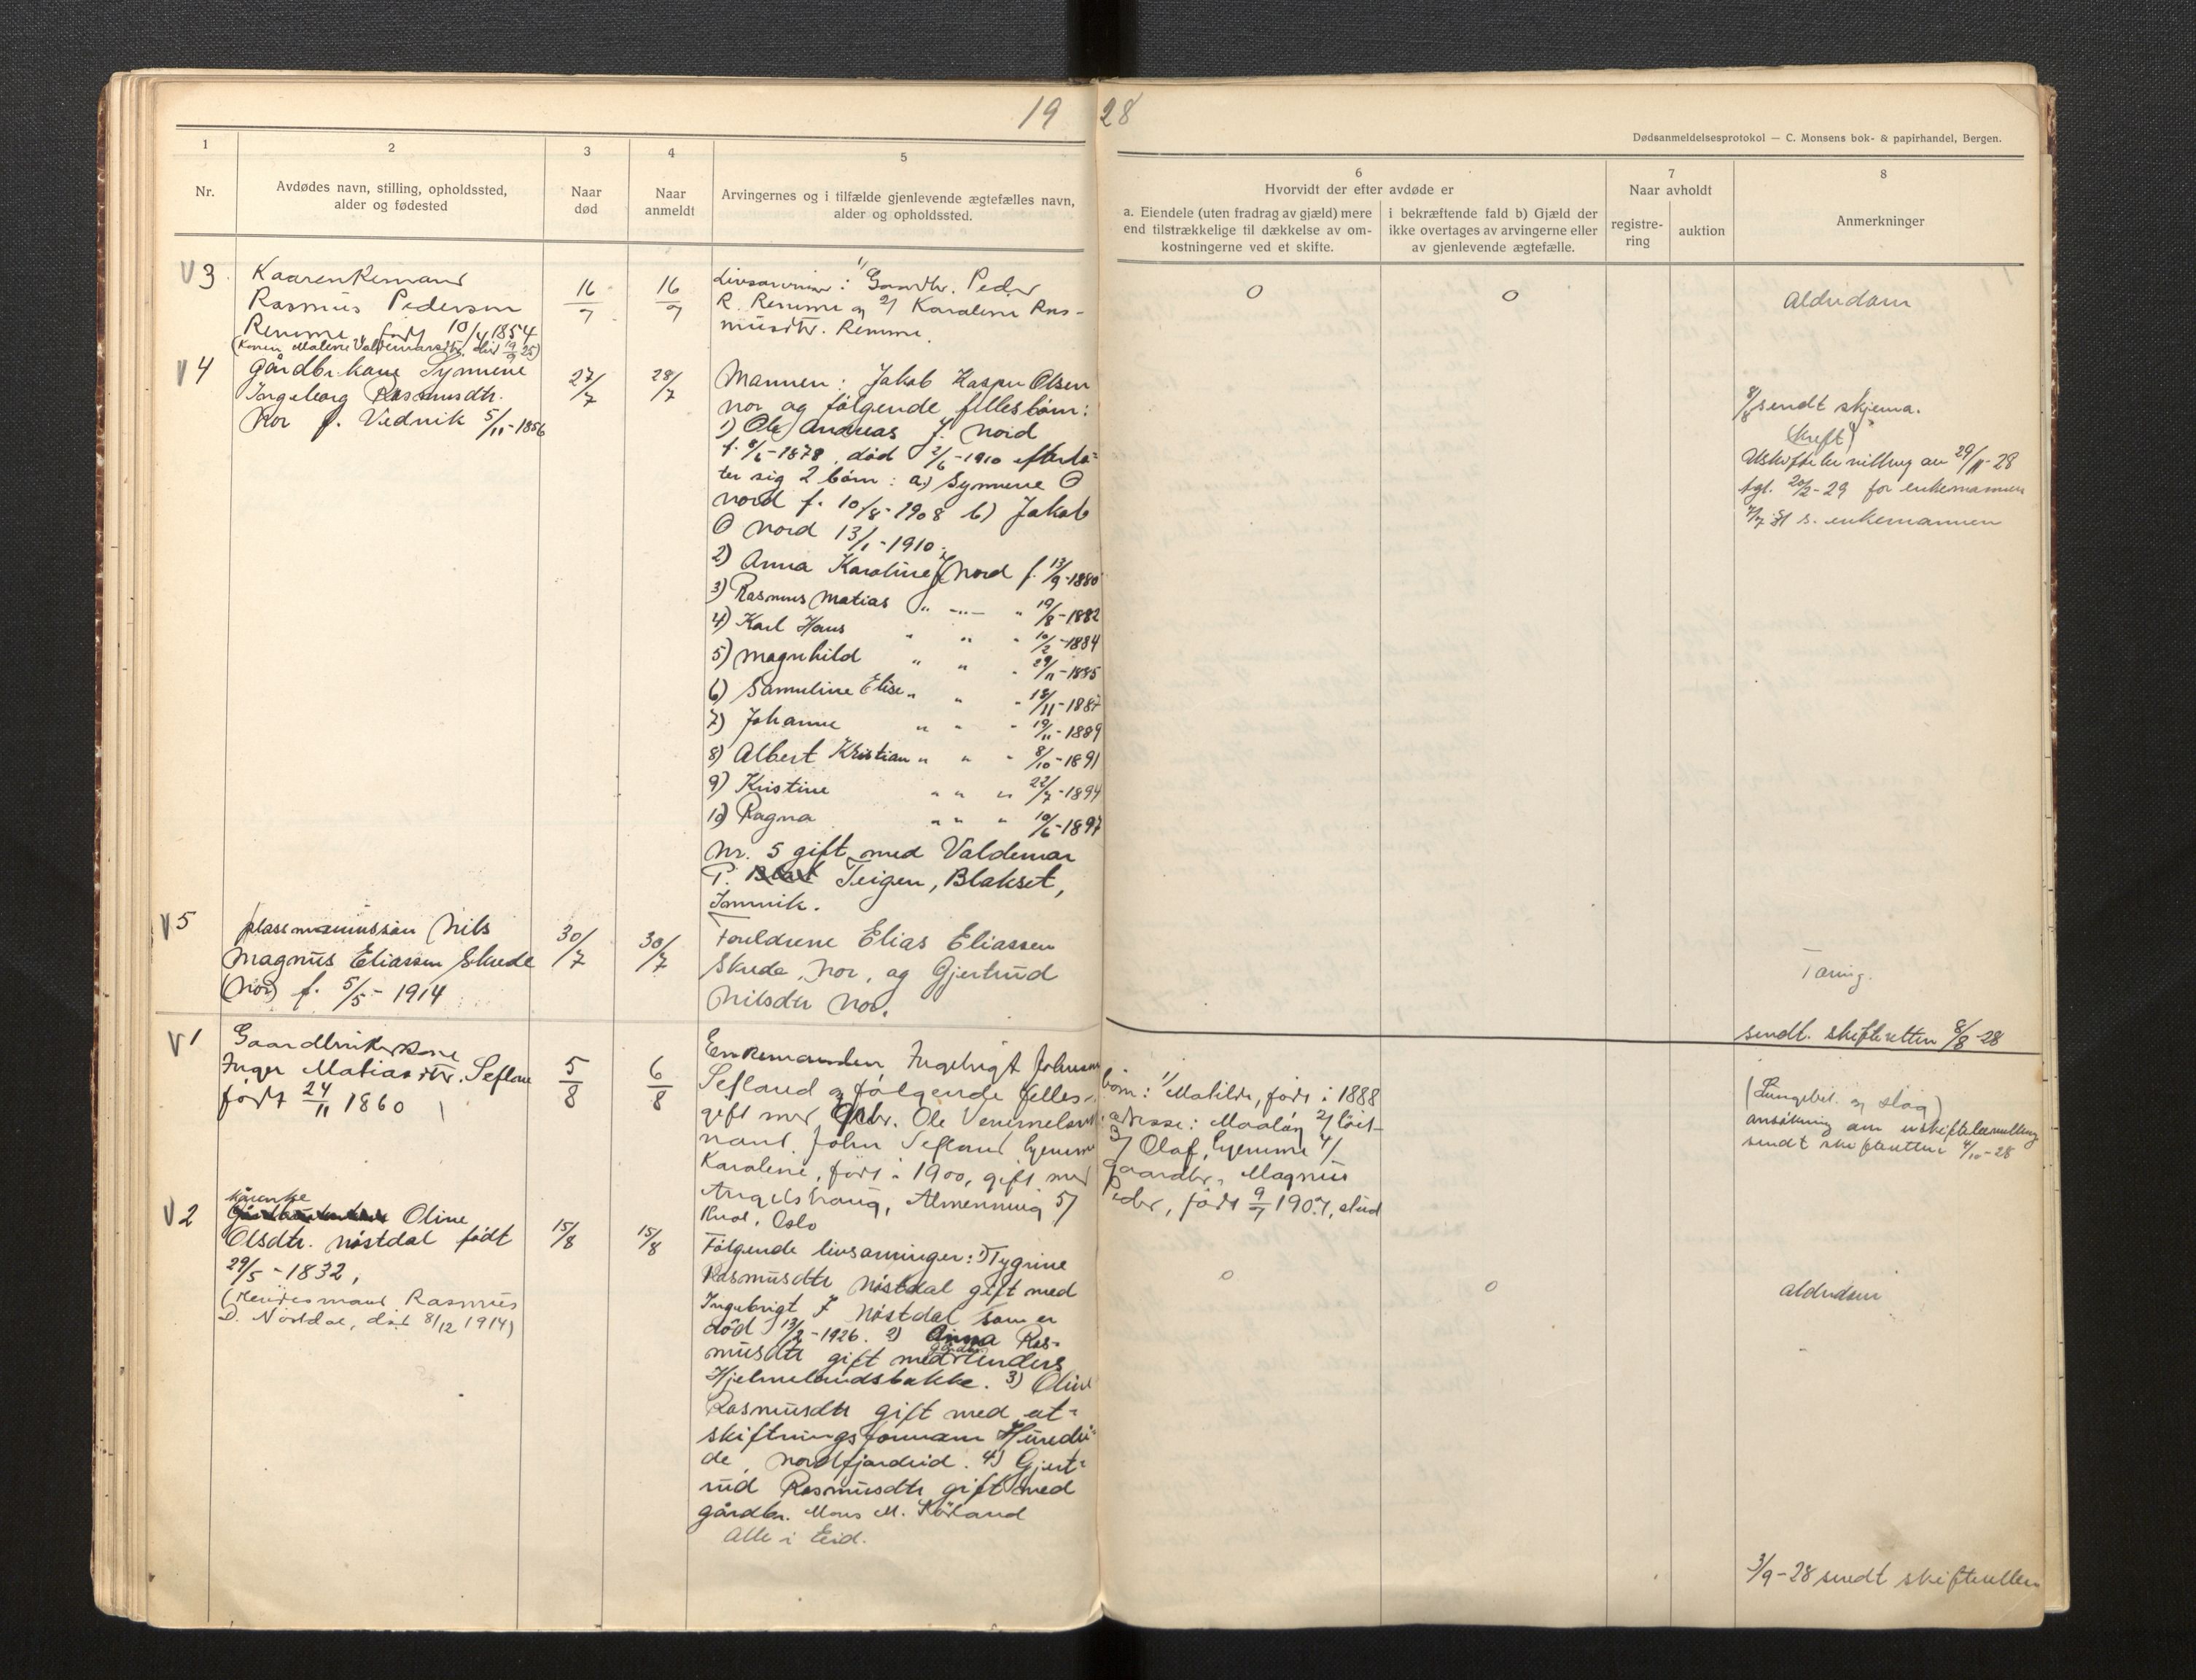 19 28
Dødsanmeldelsesprotokol — C. Monsens bok- & papirhandel, Bergen.
1
2
3
4
5
6
7
8
Nr.
Avdødes navn, stilling, opholdssted,
alder og fødested
Naar
død
Naar
anmeldt
Arvingernes og i tilfælde gjenlevende ægtefælles navn,
alder og opholdssted.
Hvorvidt der efter avdøde er
a. Eiendele (uten fradrag av gjæld) mere
end tilstrækkelige til dækkelse av om-
kostningerne ved et skifte.
i bekræftende fald b) Gjæld der
ikke overtages av arvingerne eller
av gjenlevende ægtefælle.
Naar avholdt
registre-
ring
auktion
Anmerkninger
V 3
Kaarenkemand
Rasmus Pedersen
Remme, født 10/4 1854
(Konen Malene Valdemarsdtr. død 19/9 25)
16/7
16/7
Livsarvinger: 1/ Gaardbr. Peder
R. Remme og 2/ Karaline Ras-
musdtr. Remme.
0
0
Alderdom
V 4
Gårdbr.kone Synnene
Ingeborg Rasmusdtr.
Nor f. Vednik 5/11-1856
27/7
28/7
Mannen: Jakob Kasper Olsen
Nor og følgende fellesbørn:
1) Ole Andreas J. Nord
f. 8/6-1878, død 2/6-1910 efterla-
ter sig 2 børn: a) Synnene O
Nord f. 10/8-1908 b) Jakob
O Nord 13/1-1910.
2) Anna Karoline J. Nord f. 13/9-1880
3) Rasmus Matias " -"- " 19/8-1882
4) Karl Hans " " " 10/2-1884
5) Magnhild " " " 29/11-1885
6) Samuline Elise " " " 18/11-1887
7) Johanne " " " 19/11-1889
8) Albert Kristian " " " 8/10-1891
9) Kristine " " " 22/7-1894
10) Ragna " " " 10/6-1897
Nr. 5 gift med Valdemar
P. Teigen, Blakset,
Innvik.
8/8 sendt skjema.
(kreft)
Uskiftebevilling av 29/11-28
tgl. 20/2-29 for enkemannen
7/7 31 s. enkemannen
V 5
plassmannssøn Nils
Magnus Eliassen Skrede
(Nor) f. 5/5-1914
30/7
30/7
Foreldrene Elias Eliassen
Skrede, Nor, og Gjertrud
Nilsdtr Nor.
Tæring.
sendt skifteretten 8/8-28
V 1
Gaardbrukerkone
Inger Matiasdtr. Sefland
født 24/11 1860
5/8
6/8
Enkemanden Ingebrigt Johnsen
Sefland og følgende felles-
børn: 1/ Matilde, født i 1888
gift med Gbr. Ole Vemmelsvik
adresse: Maaløy 2/ løit-
nant John Sefland hjemme
3/ Olaf, hjemme 4/
Karoline, født i 1900, gift med
gaardbr. Magnus
Angelshaug, Almenning 5/
Peder, født 9/7 1907, stud
Oslo
(Lungebet. og slag)
ansøkning om uskiftebevilling
sendt skifteretten 4/10-28
V 2
Kårenke
Oline
Olsdtr. Nøstdal født
29/5-1832,
(Hendes mand Rasmus
D. Nøstdal, død 8/12 1914)
15/8
15/8
Følgende livsarvinger: 1) Tygrine
Rasmusdtr Nøstdal gift med
Ingebrigt J Nøstdal som er
død 13/2-1926. 2) Anna Ras-
musdtr gift med gårdbr. Anders
Hjelmelandsbakke. 3) Oline
Rasmusdtr gift med ut-
skiftningsformann Hundei-
de, Nordfjordeid. 4) Gjert-
rud Rasmusdtr gift med
gårdbr. Mons M. Løland
Alle i Eid.
0
0
alderdom
3/9-28 sendt skifteretten